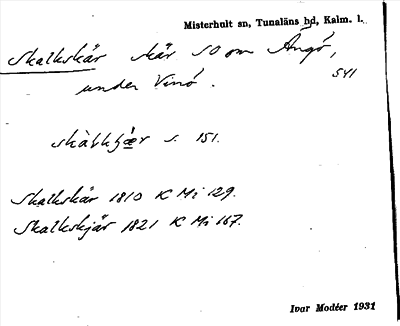 Misterhult sn, Tunaläns hd, Kalm. l.
Skalkskär skär SO om Ängö,
S41
under Vinö.
skàlkʃær s. 151.
Skalkskär 1810 K Mi 129.
Skalkskjär 1821 K Mi 167.
Ivar Modéer 1931